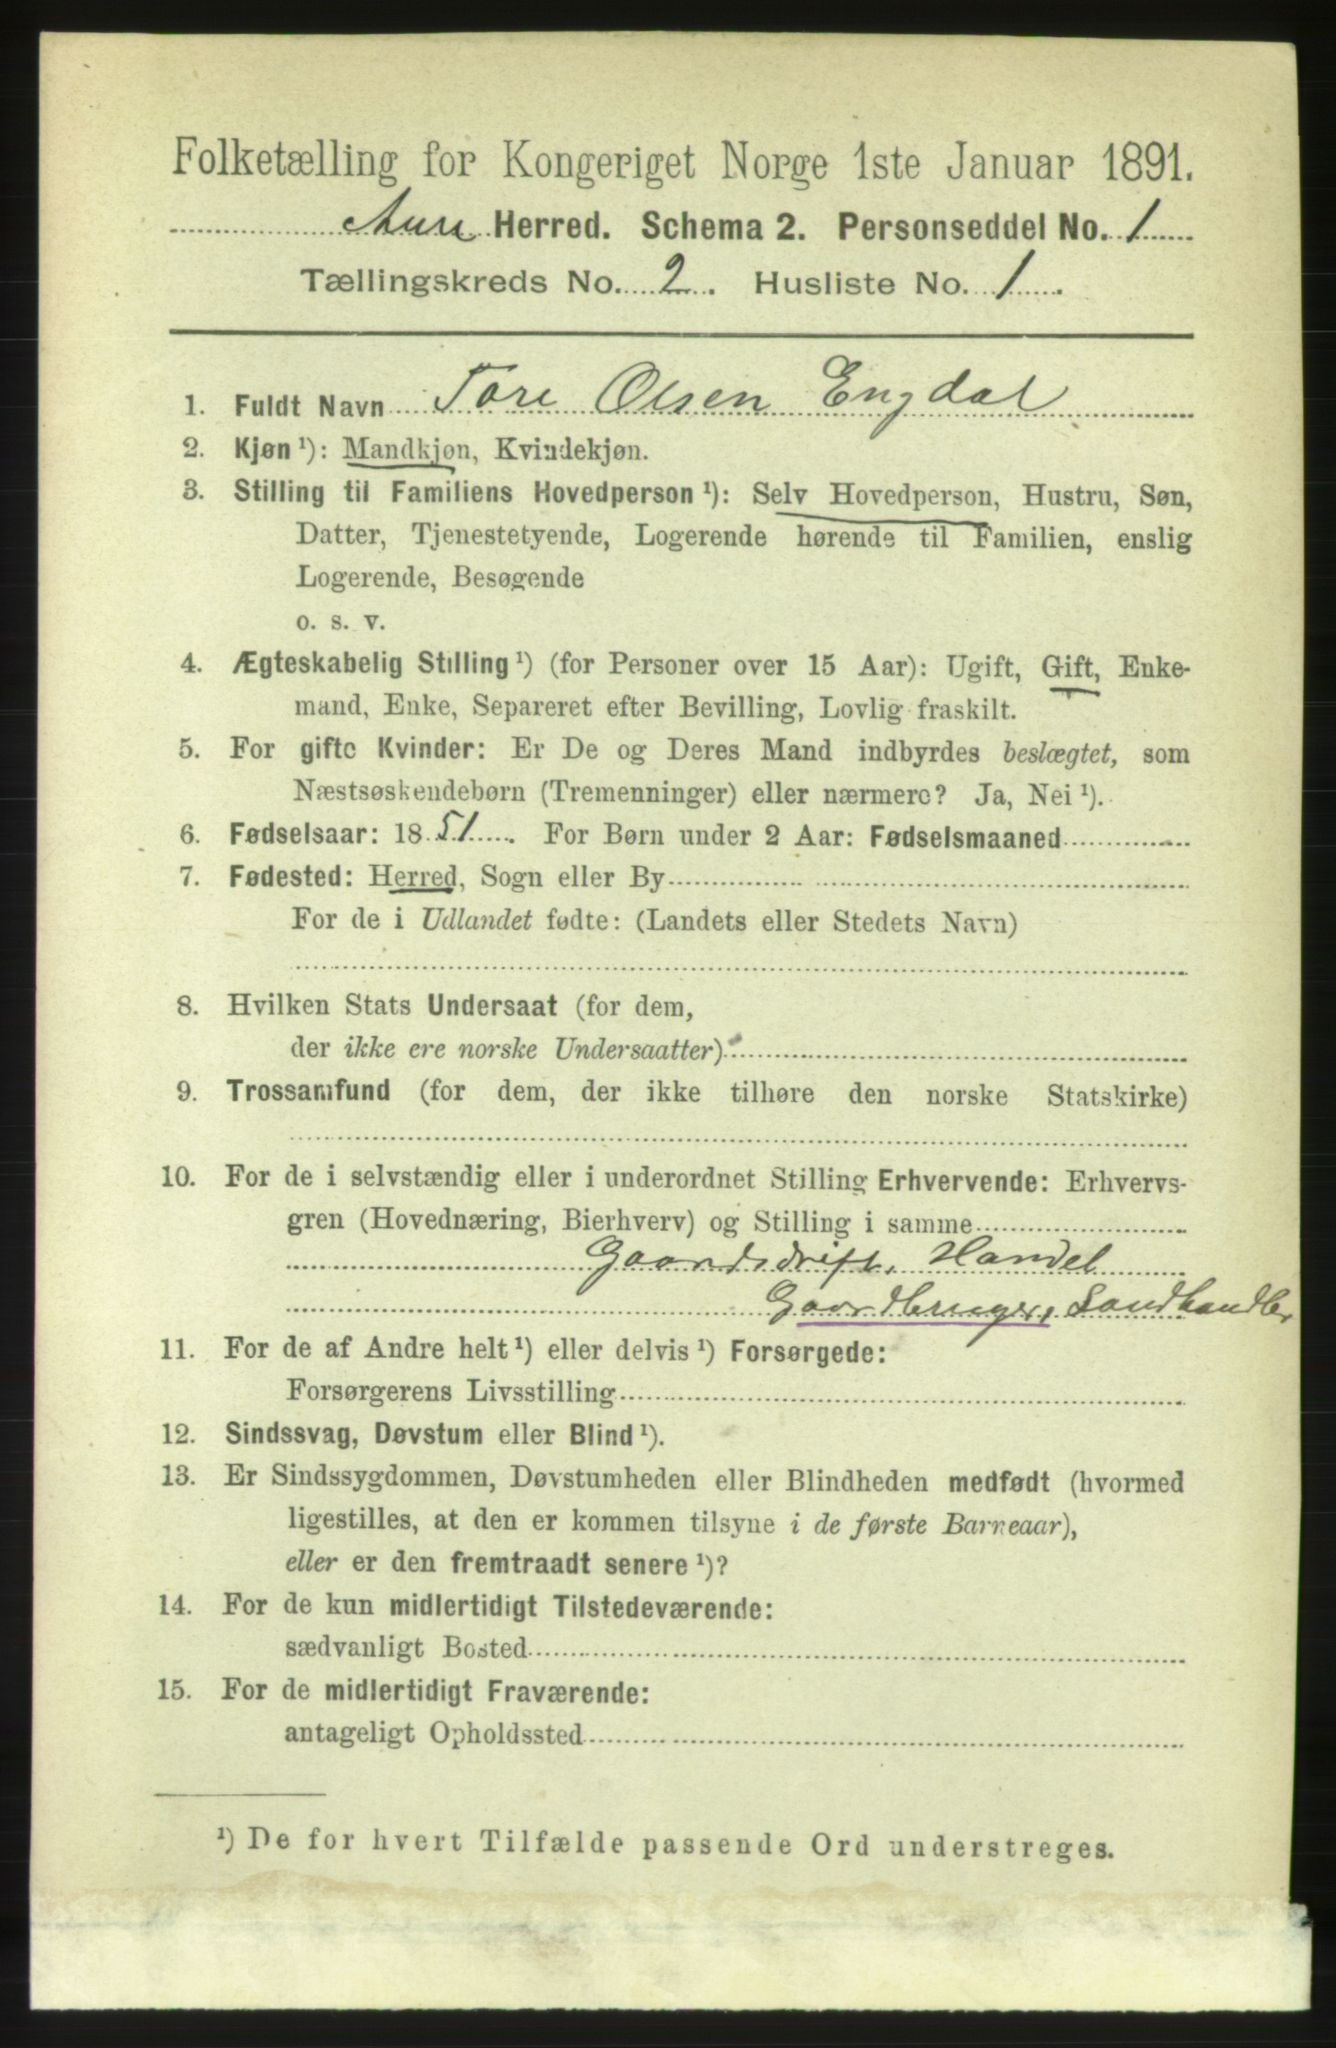 Folketælling for Kongeriget Norge 1ste Januar 1891.
Aure Herred. Schema 2. Personseddel No. 1
Tællingskreds No. 2. Husliste No. 1.
1. Fuldt Navn Tore Olsen Engdal
2. Kjøn ¹): Mandkjøn, Kvindekjøn.
3. Stilling til Familiens Hovedperson ¹): Selv Hovedperson, Hustru, Søn,
Datter, Tjenestetyende, Logerende hørende til Familien, enslig
Logerende, Besøgende
o. s. v.
4. Ægteskabelig Stilling ¹) (for Personer over 15 Aar): Ugift, Gift, Enke-
mand, Enke, Separeret efter Bevilling, Lovlig fraskilt.
5. For gifte Kvinder: Er De og Deres Mand indbyrdes beslægtet, som
Næstsøskendebørn (Tremenninger) eller nærmere? Ja, Nei ¹).
6. Fødselsaar: 1851. For Børn under 2 Aar: Fødselsmaaned
7. Fødested: Herred, Sogn eller By
For de i Udlandet fødte: (Landets eller Stedets Navn)
8. Hvilken Stats Undersaat (for dem,
der ikke ere norske Undersaatter)
9. Trossamfund (for dem, der ikke tilhøre den norske Statskirke)
10. For de i selvstændig eller i underordnet Stilling Erhvervende: Erhvervs-
gren (Hovednæring, Bierhverv) og Stilling i samme
Gaardsdrift, Handel
Gaardbruger, Landhandler
11. For de af Andre helt ¹) eller delvis ¹) Forsørgede:
Forsørgerens Livsstilling
12. Sindssvag, Døvstum eller Blind ¹).
13. Er Sindssygdommen, Døvstumheden eller Blindheden medfødt (hvormed
ligestilles, at den er kommen tilsyne i de første Barneaar),
eller er den fremtraadt senere ¹)?
14. For de kun midlertidigt Tilstedeværende:
sædvanligt Bosted
15. For de midlertidigt Fraværende:
antageligt Opholdssted
¹) De for hvert Tilfælde passende Ord understreges.